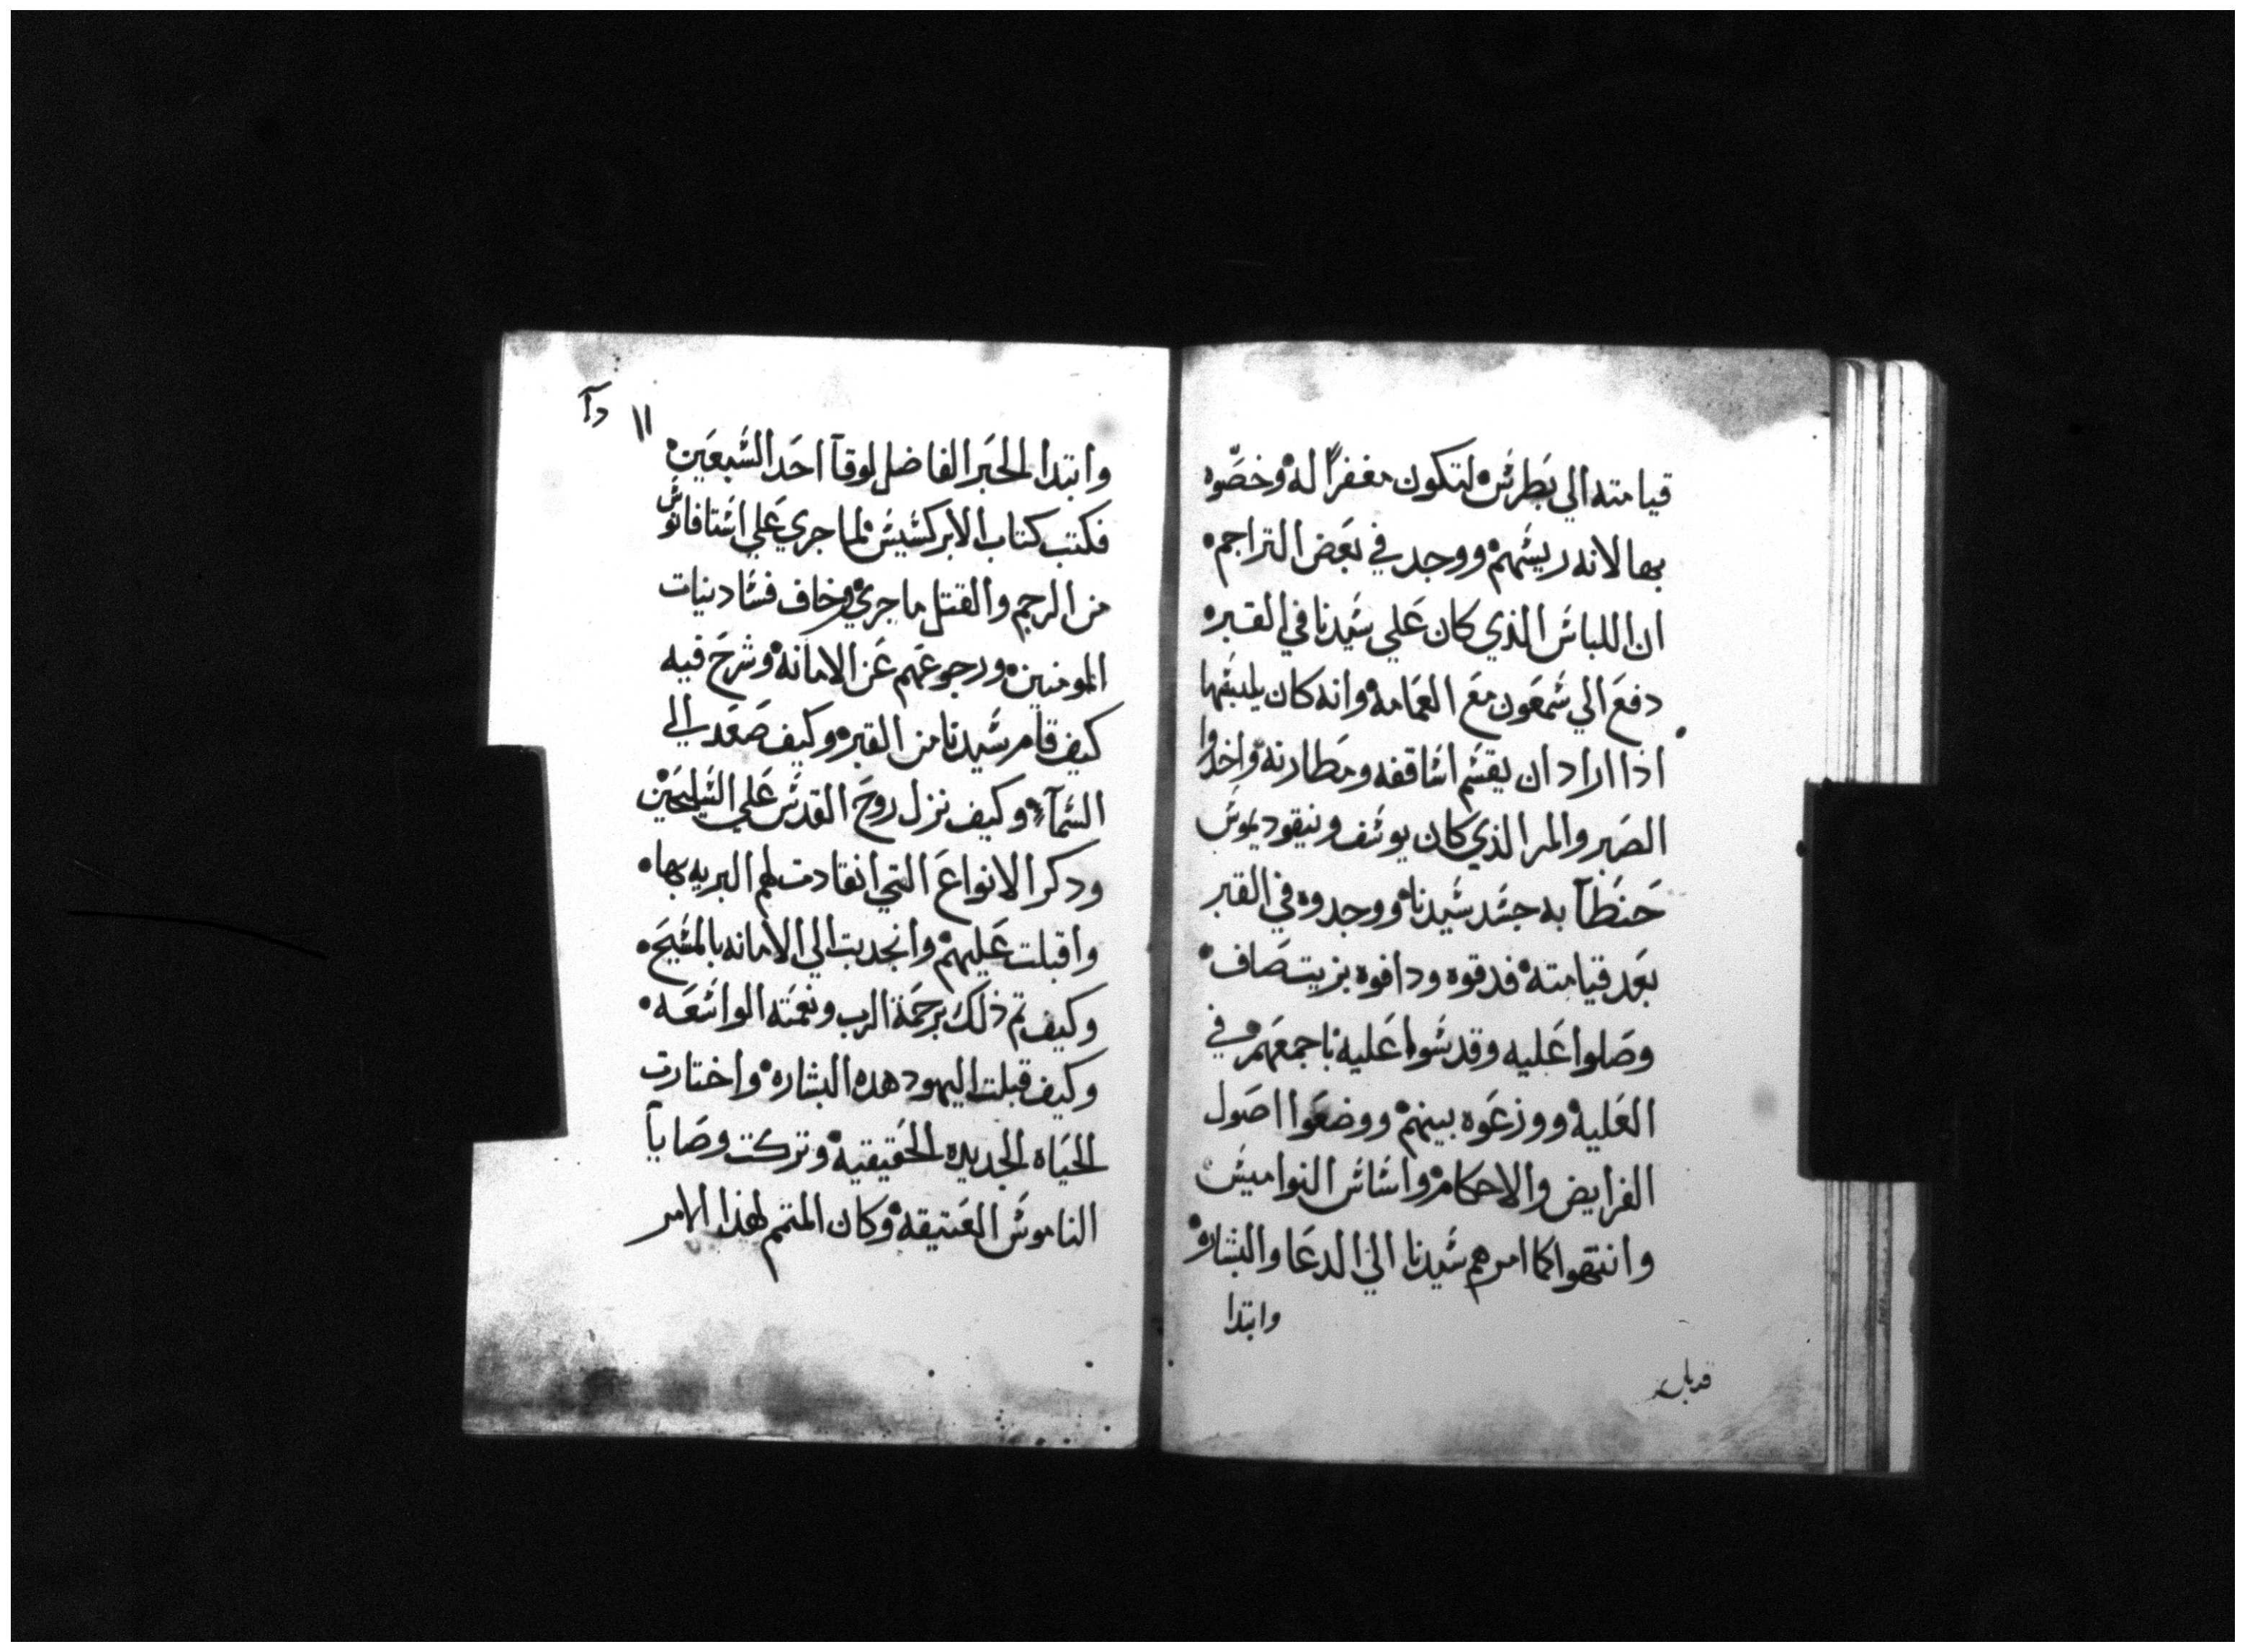 قيامته الي بطرس لتكون مغفراً له وخصّوه
بها لانه ريسهم ووجد في بعض التراجم
ان اللباس الذي كان علي سيدنا في القبر
دفع الي شمعون مع العمامه وانه كان يلبسها
اذا اراد ان يقسم اساقفه ومطارنه واخدوا
الصبر والمر الذي كان يوسف ونيقوديموس
حنطآ به جسد سيدنا ووجدوه في القبر
بعد قيامته فدقوه ودافوه بزيت صاف
وصلوا عليه وقدسوا عليه باجمعهم في
العليه ووزعوه بينهم ووضعوا اصول
الفرايض والاحكام واساس النواميس
وانتهوا كما امرهم سيدنا الي الدعا والبشاره
وابتدا
١١
وابتدا الحبر الفاضل لوقآ احد السبعين
فكتب كتاب الابركسيس لما جري علي استافانوس
من الرجم والقتل ما جري وخاف فساد نيات
المومنين ورجوعهم عن الامانه وشرح فيه
كيف قام سيدنا من القبر وكيف صعد الي
السمآء وكيف نزل روح القدس علي السليحين
ودكر الانواع التي انقادت لهم البريه بها
واقبلت عليهم وانجدبت الي الامانه بالمسيح
وكيف تم ذلك برحمة الرب ونعمته الواسعه
وكيف قبلت اليهود هده البشاره واختارت
الحياه الجديده الحقيقيه وتركت وصايآ
الناموس العتيقه وكان المتمم لهذا الامر